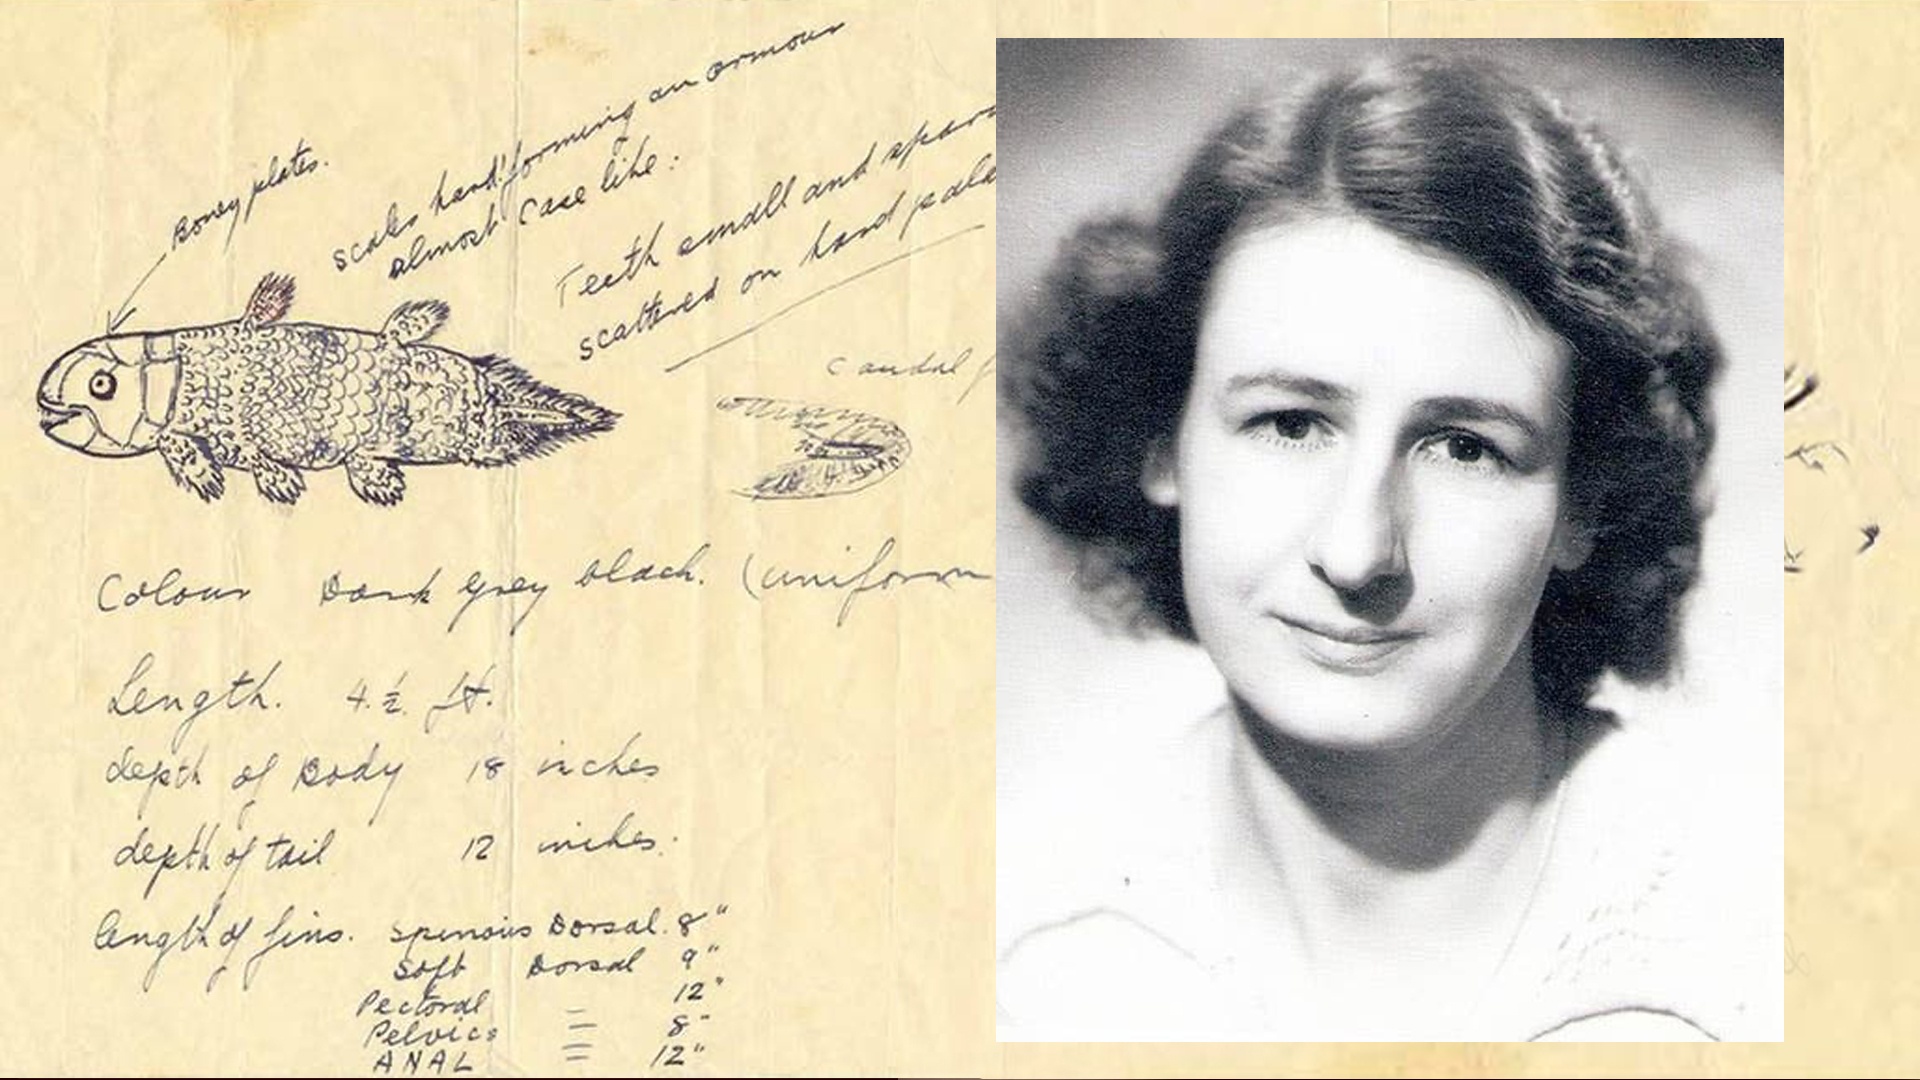 Boney plates.
scales hard forming an armour
almost case like:
Teeth small and
scattered on hard
caudal
Colour Dark grey black. (uniform
Length. 4.½. ft.
depth of Body 18 inches
depth of tail 12 inches.
length of fins. Spinous Dorsal. 8"
Soft Dorsal 9"
Pectoral = 12"
Pelvics = 8"
ANAL = 12"